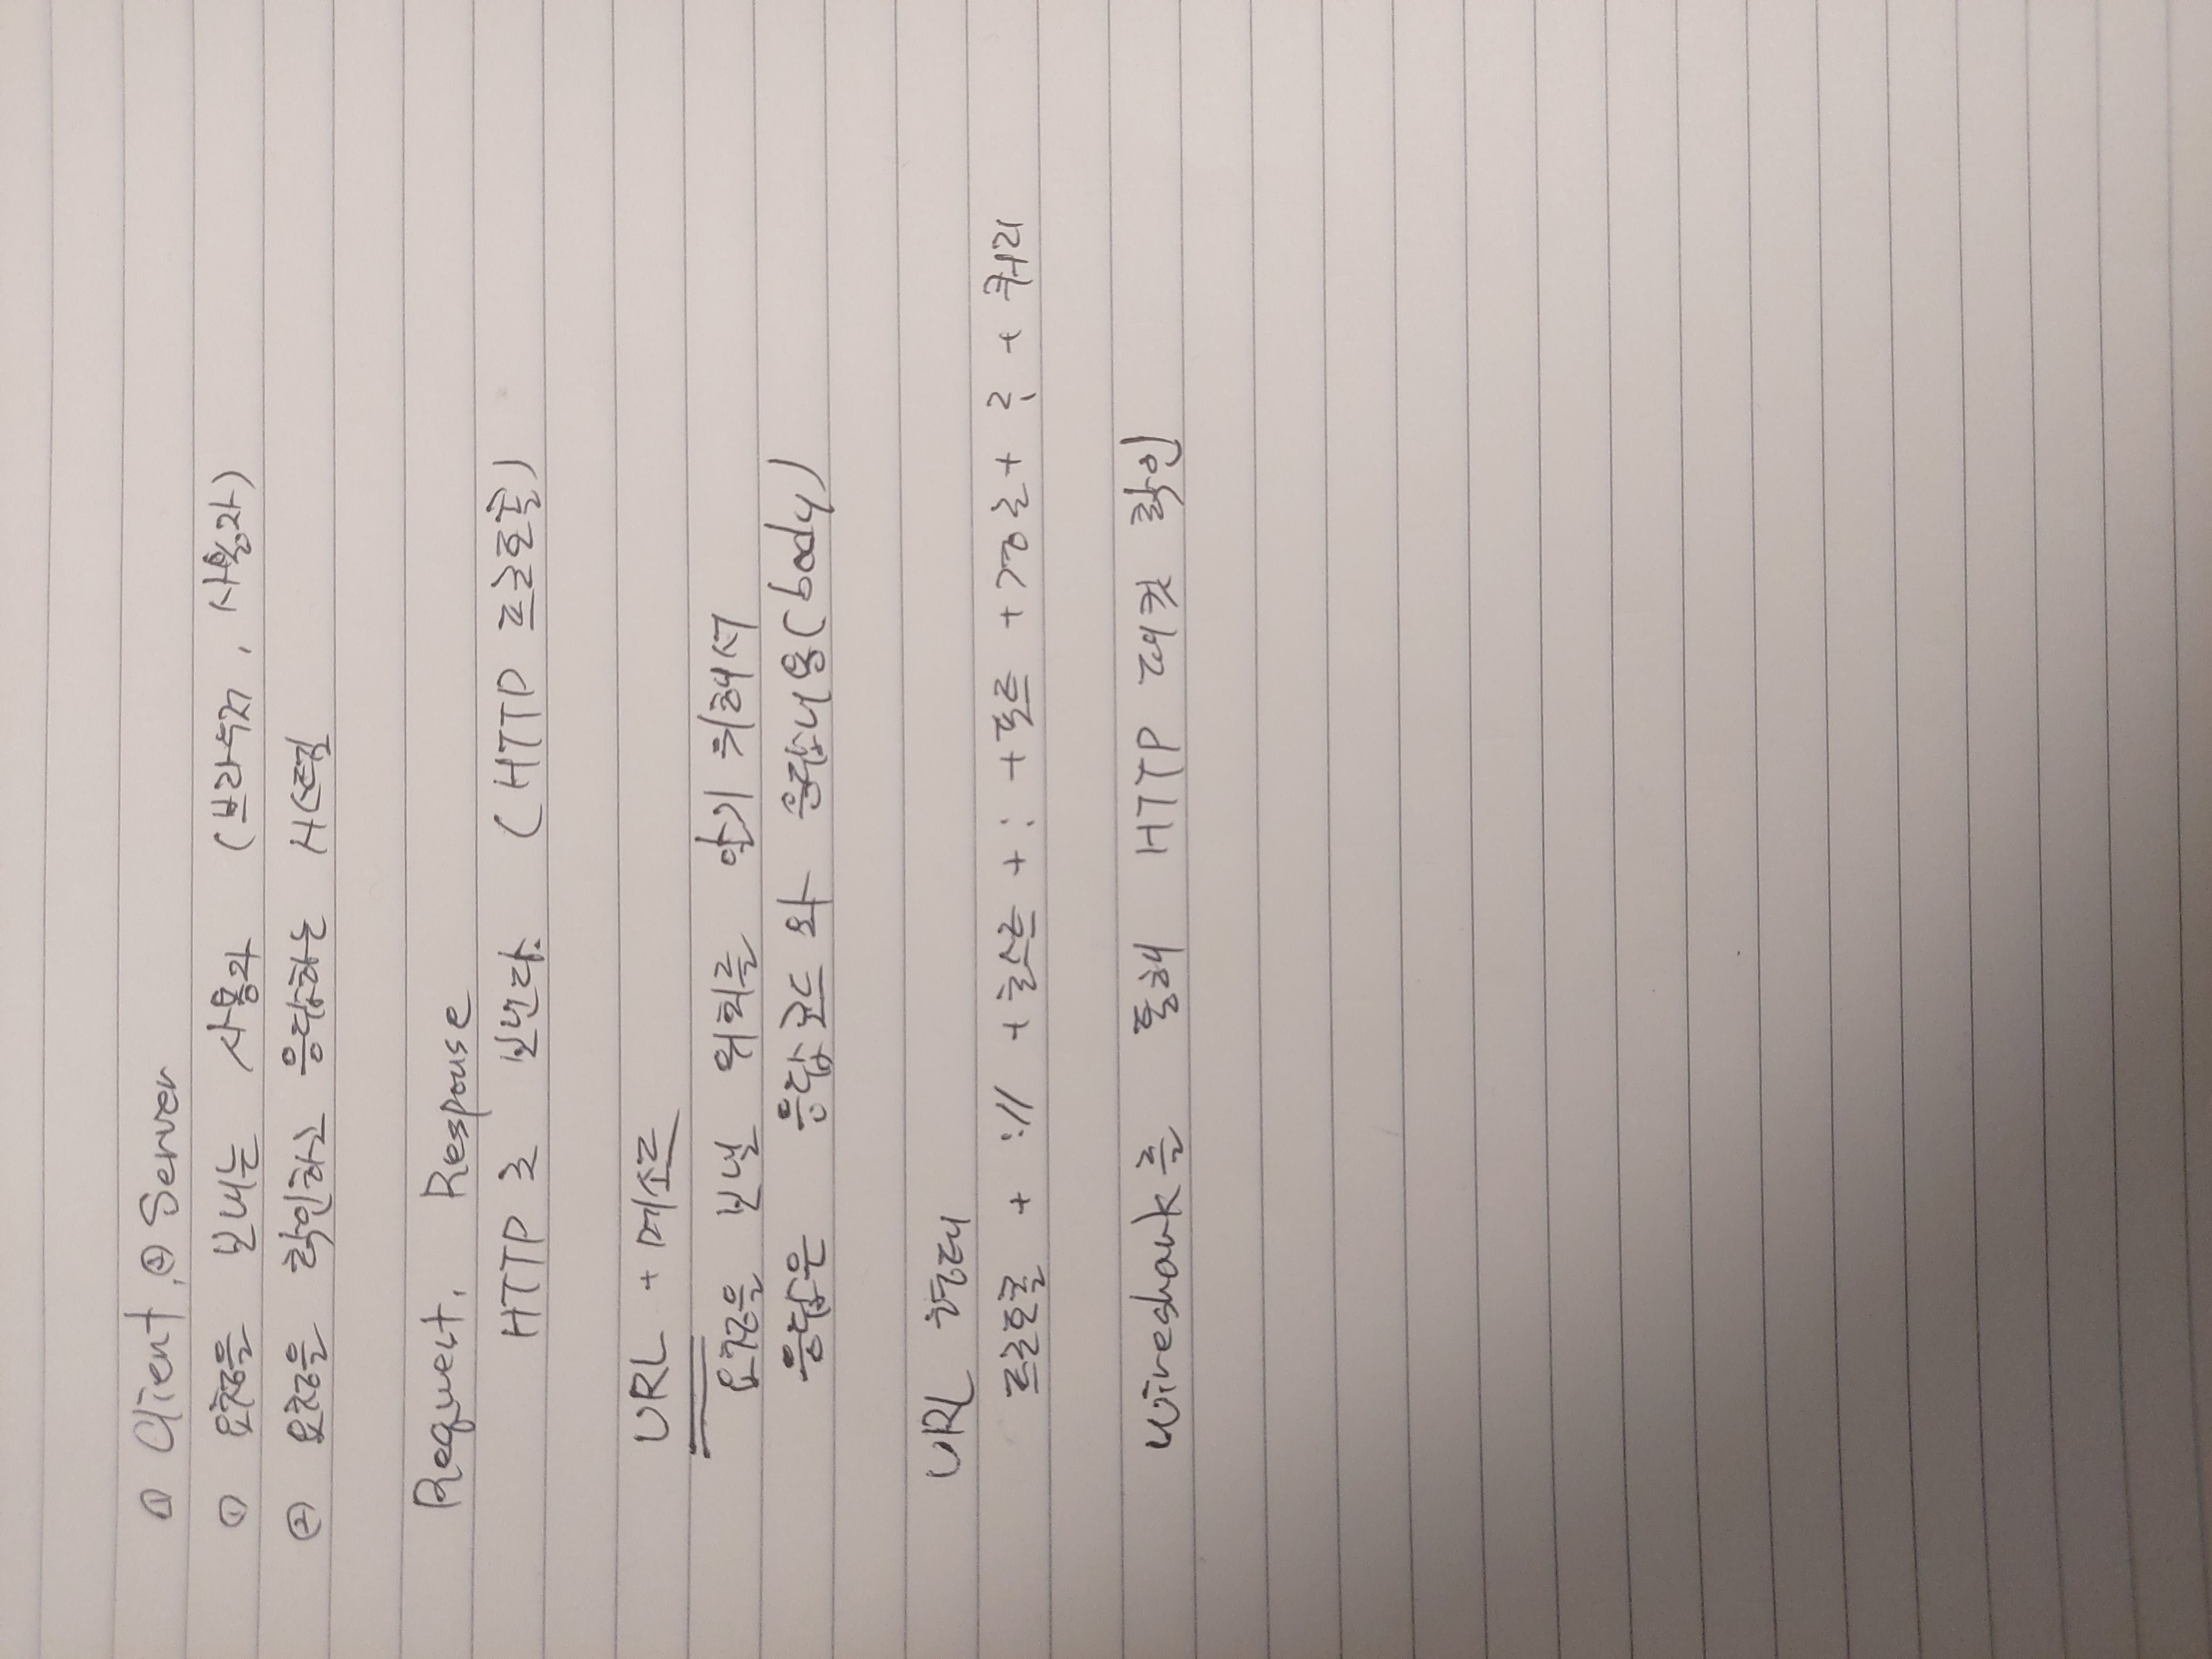 ① Client, ② Server
① 요청을 보내는 사용자 (브라우저, 사용자)
② 요청을 확인하고 응답하는 시스템
Request, Response
HTTP로 보낸다. (HTTP 프로토콜)
URL + 메소드
요청을 보낼 위치를 알기 위해서
응답은 응답코드와 응답내용(body)
URL 형태
프로토콜 + :// + 호스트 + : + 포트 + 경로 + ? + 쿼리
Wireshark를 통해 HTTP 패킷 확인